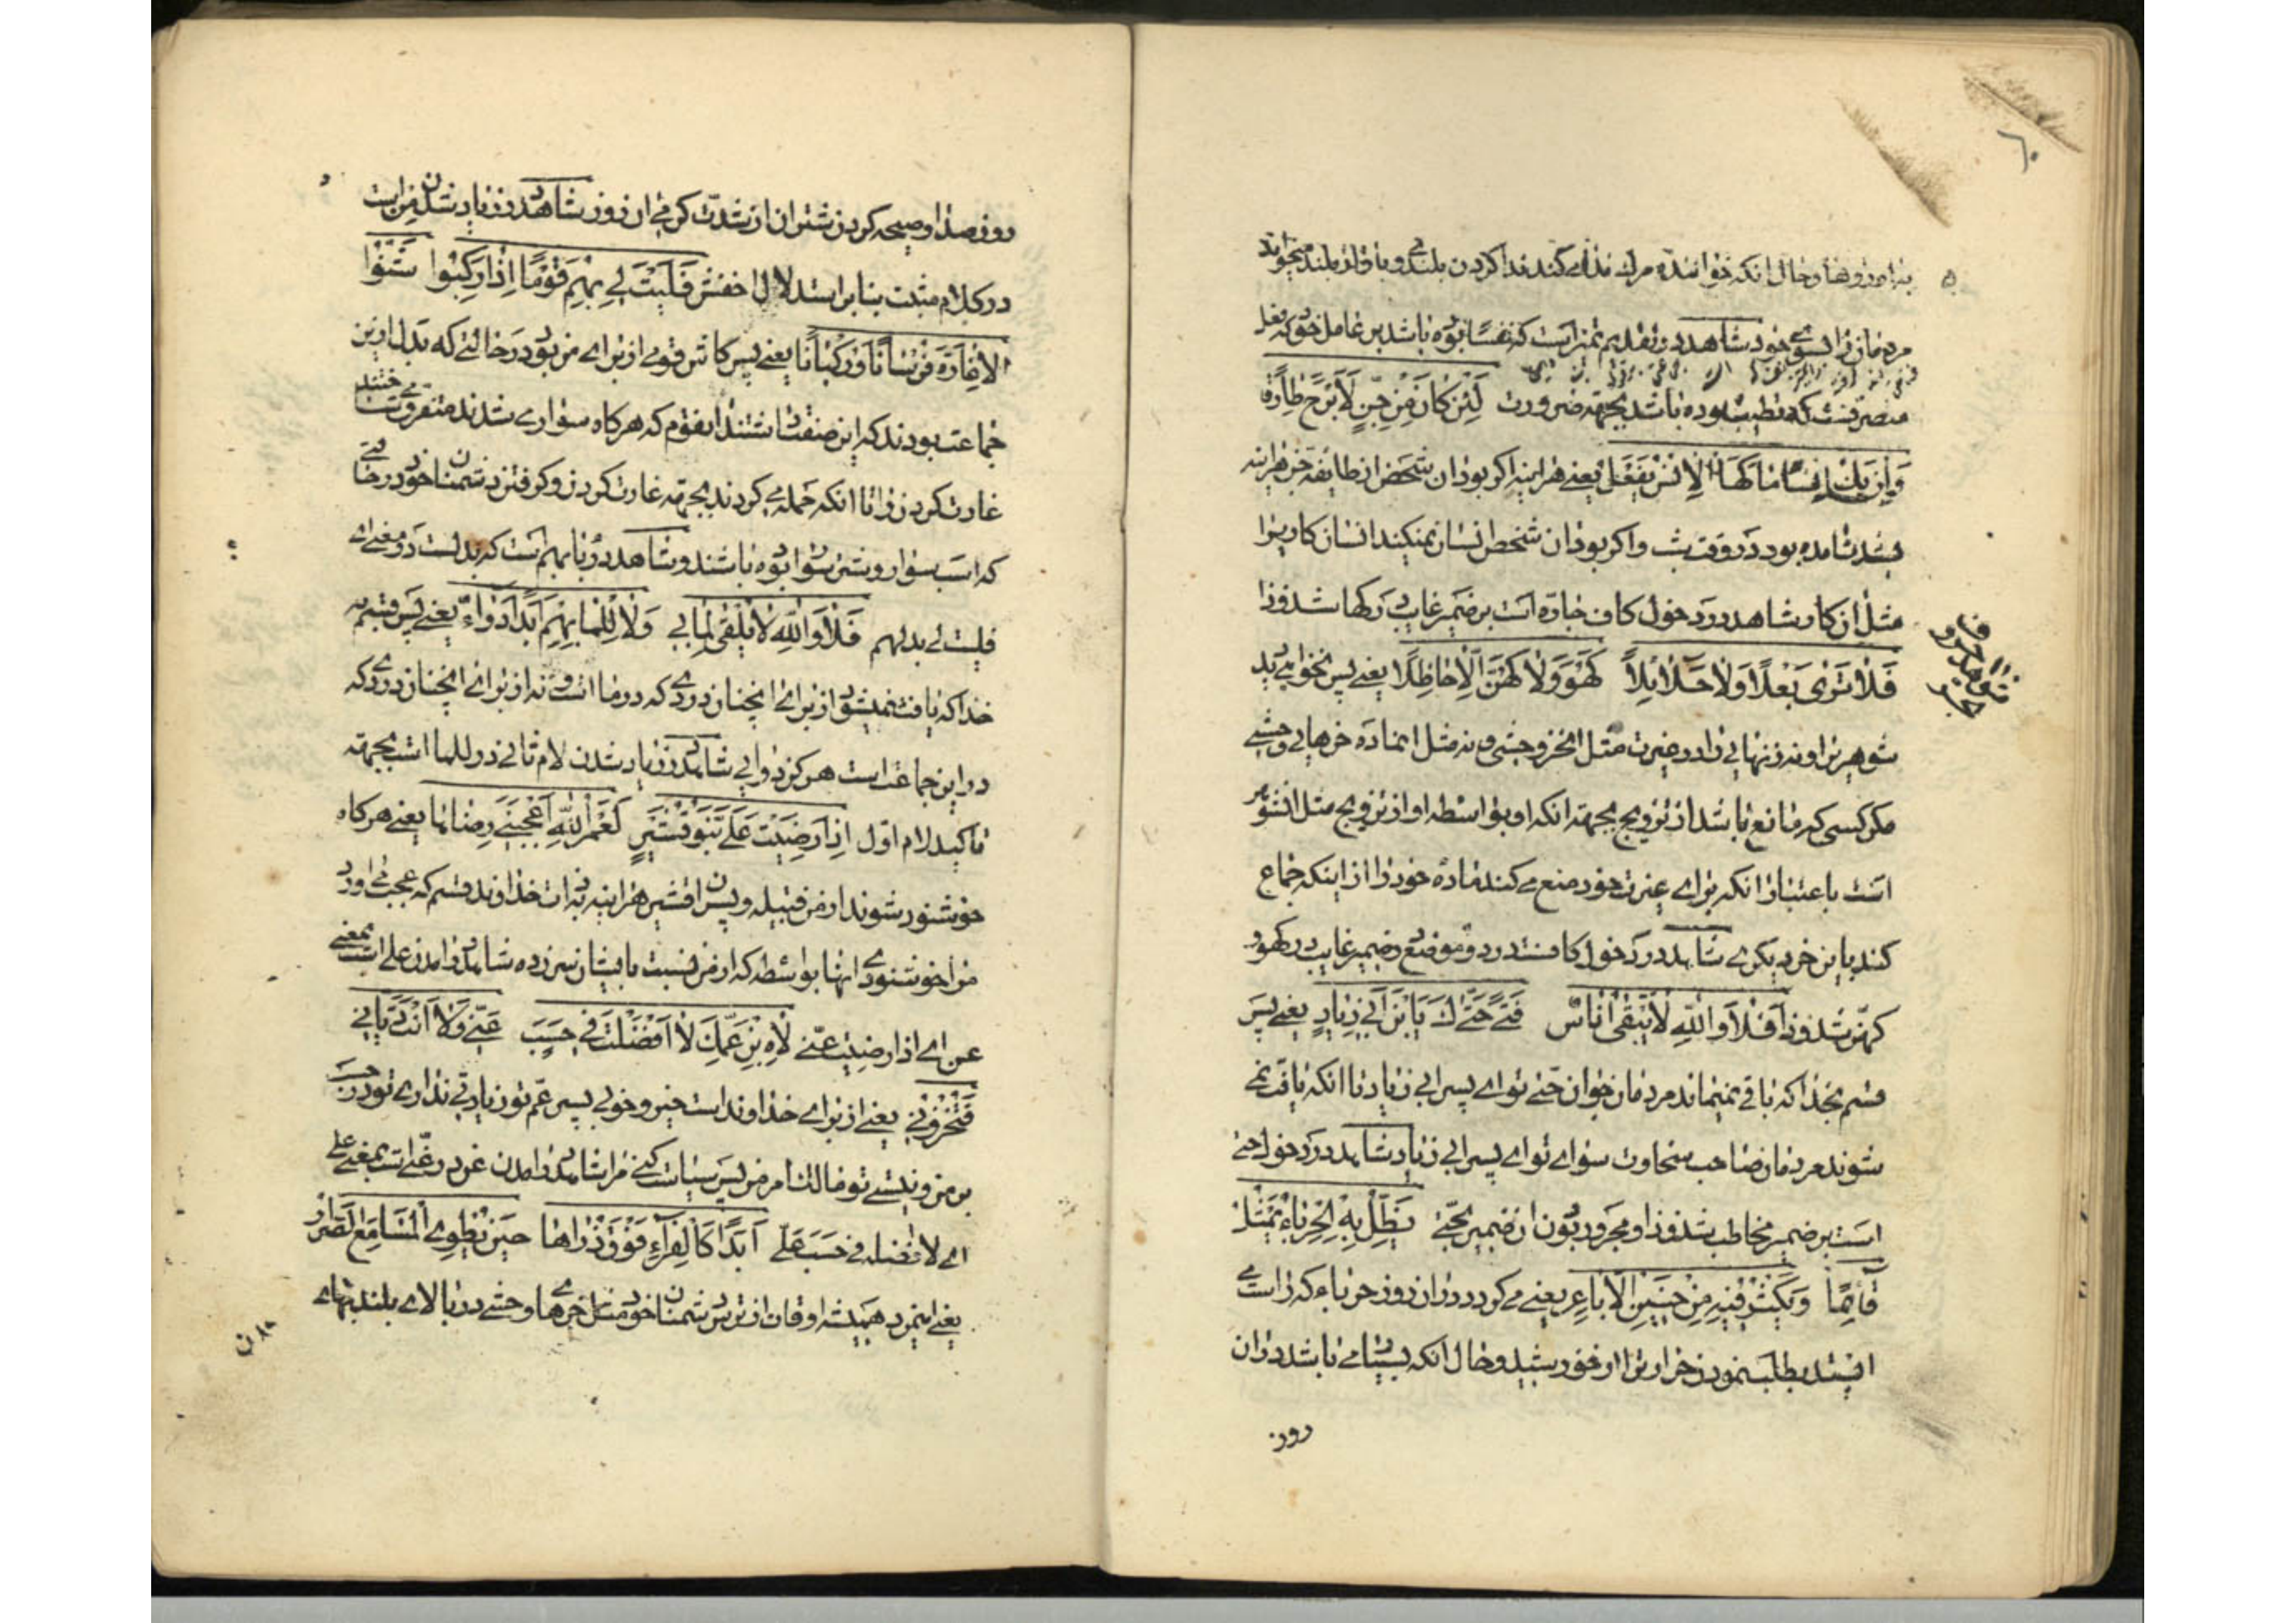 بنامردوها و حال انکه خواننده مرك ندا می کند ندا کردن بلندی و باواز بلند میخواند
مردمان را بسوی خود شاهد در تقدیم تمیز است که نفسا بوده باشد بر عامل خود که فعل
متصرفست که تطیب بوده باشد بجهته ضرورت لَئِن كَانَ مِن جِنٍّ لَأَبْرَحُ طَارِقًا
وَإِن يَكُ إِنسًا مَا كَهَا الْإِنْسُ يَفْعَلُ یعنی هراینه اکر بود ان شخص از طایفه جن هراینه
شدت امده بود در وقت شب واکر بود ان شخص انسان نمیکند انسان کار ویرا
مثل ان کار شاهد در دخول کاف جاره است بر ضمیر غایب در کها شذوذا
فَلَا تَرَى بَعْلًا وَلَا حَلَائِلًا كَهُوَ وَلَا كَهُنَّ إِلَّا حَاظِلًا یعنی پس نخواهی دید
شوهر را و نه زنهایی را در غیرت مثل انخر وحشی و نه مثل انماده خرهایی وحشی
مکر کسی که مانع باشد از تزویج بجهته انکه او بواسطه او از تزویج مثل انشوهر
است باعتبار انکه برای غیرت خود منع می کند ماده خود را از اینکه جماع
کند باین خر دیکری شاهد در دخول کافست در دو موضع بر ضمیر غایب در کهو و
کهنّ شذوذا فَلَا وَاللَّهِ لَا يَبْقَى أُنَاسٌ فَتًى حَتَّاكَ يَا بْنَ أَبِي زِيَادٍ یعنی پس
قسم بخدا که باقی نمیماند مردمان جوان حتی تو ای پسر ابی زیاد تا انکه یافت نمی
شوند مردمان صاحب سخاوت سوای تو ای پسر ابی زیاد شاهد در دخول حتی
است بر ضمیر مخاطب شذوذا و مجرور بودن ان ضمیر بحتی يَظَلُّ بِهِ الْحِرْبَاءُ يَمْثُلُ
قَائِمًا وَيَكْثُرُ فِيهِ مِنْ حَنِينِ الْأَبَاعِرِ یعنی می کردد در ان روز حرباء که راست می
ایستد بطلب نمودن حرارت را از خورشید و حال انکه بسیار می باشد در ان
روز
روز صدا و صیحه کردن شتران از شدت کرمی ان روز شاهد در زیاد شدن من است
در کلام مثبت بنابر استدلال اخفش فَلَيْتَ لِي بِهِمْ قَوْمًا إِذَا رَكِبُوا شَنُّوا
الْإِغَارَةَ فُرْسَانًا وَرُكْبَانًا یعنی پس کاش قومی از برای من بود در حالتی که بدل از این
جماعت بودند که این صفت داشتند انقوم که هرکاه سواری شدند متفرق می ساختند
غارت کردن را تا انکه حمله می کردند بجهته غارت کردن و کرفتن دشمنان خود در حالتی
که اسب سوار و شتر سوار بوده باشند و شاهد در با بهم است که بدلست در معنی ای
فلیت لی بدلهم فَلَا وَاللَّهِ لَا يُلْفَى لِمَا بِي وَلَا لِلِمَا بِهِمْ أَبَدًا دَوَاءٌ یعنی پس قسم به
خدا که یافت نمیشود از برای انچنان دردی که در ما است و نه از برای انچنان دردی که
در این جماعت است هرکز دوایی شاهد در زیاد شدن لام ثانی در للما است بجهته
تاکید لام اول إِذَا رَضِيَتْ عَلَيَّ بَنُو قُشَيْرٍ لَعَمْرُ اللَّهِ أَعْجَبَنِي رِضَاهَا یعنی هرکاه
خوشنود شوند از من قبیله و پسران قشیر هراینه بذات خداوند قسم که بعجب می اورد
مرا خوشنودی انها بواسطه که از من نسبت بایشان سر زده شاهد در امدن علی است بمعنی
عن ای اذا رضیت عنّی لَاهِ ابْنُ عَمِّكَ لَا أَفْضَلْتَ فِي حَسَبٍ عَنِّي وَلَا أَنْتَ دَيَّانِي
فَتَخْزُونِي یعنی از برای خداوند است خیر و خوبی پسر عم تو زیادتی نداری تو در حسب
بر من و نیستی تو مالك امر من پس سیاست کنی مرا شاهد در امدن عن در عنّی است بمعنی علی
ای لا افضلت فی حسب علیّ أَبَدًا كَالْفِرَاءِ فَوْقَ ذُرَاهَا حِينَ يَطْوِي الْمَسَامِعَ الصَّرَّارُ
یعنی انمرد همیشه اوقات از ترس دشمنان خود مثل خرهای وحشی در بالای بلندیهای